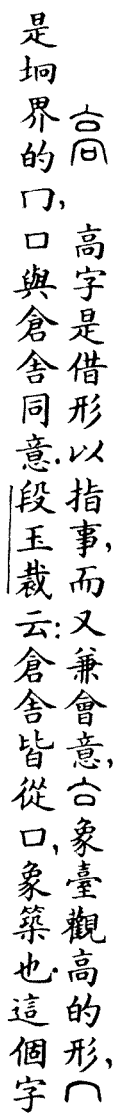 高 高字是借形以指事，而又兼會意，㐭象臺觀高的形，冂
是坰界的冂，口與倉舍同意．段玉裁云：倉舍皆從口，象築也．這個字